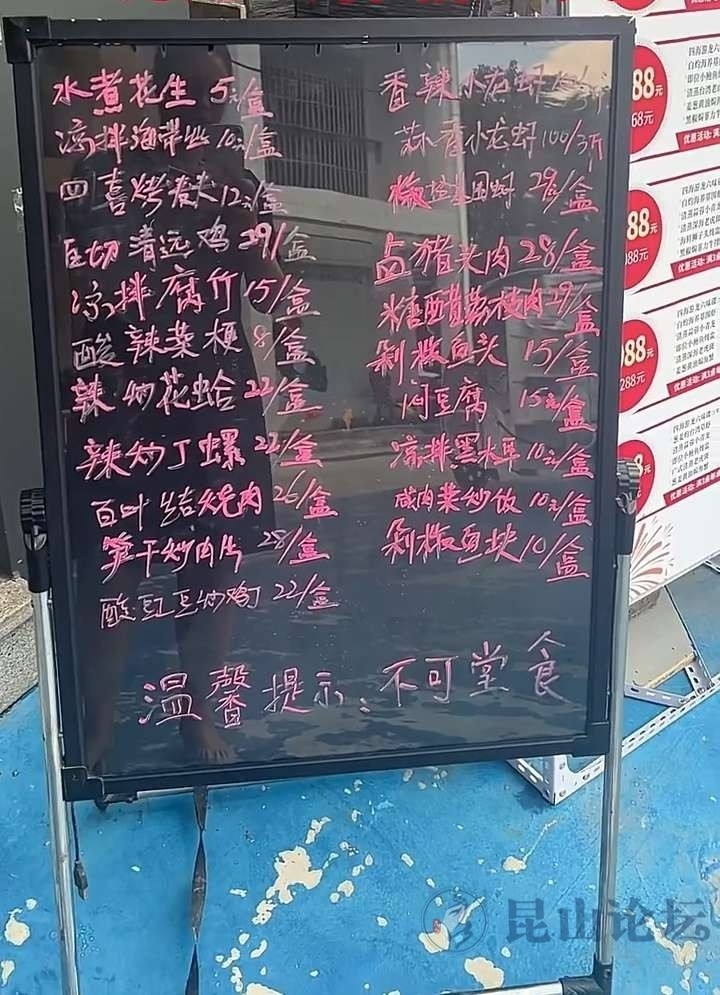 水煮花生 5元/盒
凉拌海带丝 10元/盒
四喜烤麸 12元/盒
白切清远鸡 29/盒
凉拌腐竹 15/盒
酸辣菜梗 8/盒
辣炒花蛤 22/盒
辣炒丁螺 22/盒
百叶结烧肉 26/盒
笋干炒肉片 28/盒
酸豇豆炒鸡丁 22/盒
香辣小龙虾
蒜香小龙虾 100/3斤
椒盐基围虾 29/盒
卤猪头肉 28/盒
糖醋荔枝肉 29/盒
剁椒鱼头 15/盒
焖豆腐 15元/盒
凉拌黑木耳 10元/盒
咸肉菜炒饭 10元/盒
剁椒鱼块 10/盒
温馨提示:不可堂食
88元
68元
优惠活动: 满
88元
988元
优惠活动: 满3
088元
288元
优惠活动: 满3
昆山论坛